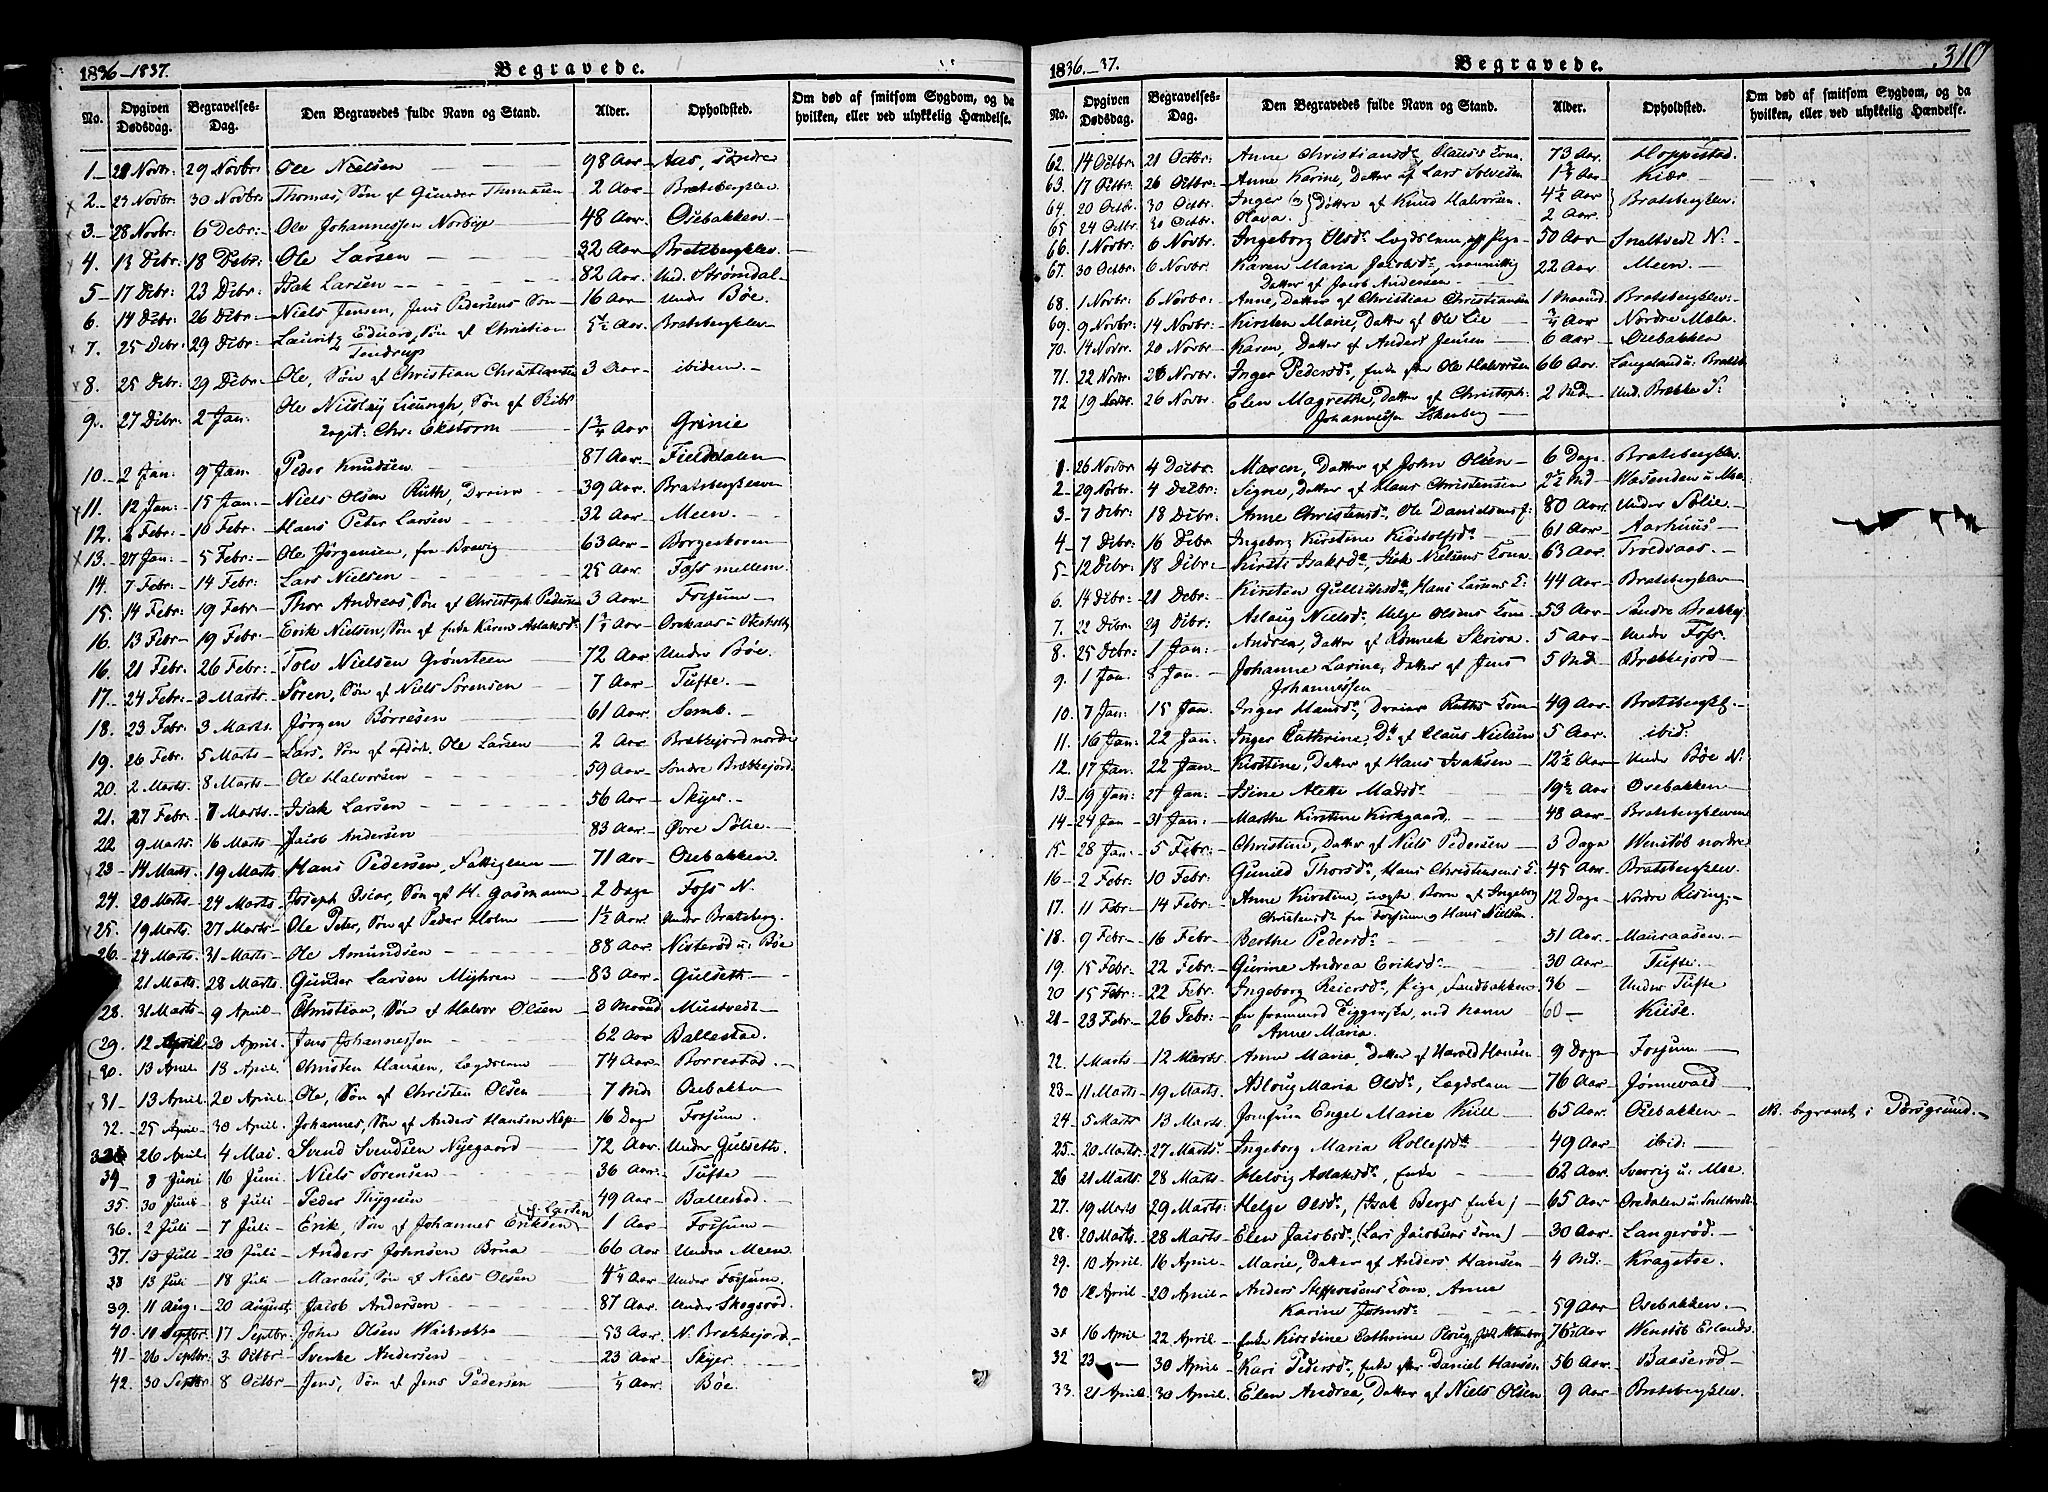 1836–1837.
Begravede.
No. Opgiven Dødsdag. Begravelses-Dag. Den Begravedes fulde Navn og Stand. Alder. Opholdsted. Om død af smitsom Sygdom, og da hvilken, eller ved ulykkelig Hændelse.
1 28 Novbr: 29 Novbr: Ole Nielsen 98 Aar Aas, søndre
2. 23 Novbr: 30 Novbr: Thomas, Søn af Gunder Thomasen 2 Aar Bratsbergklev
3. 28 Novbr: 6 Debr: Ole Johannessen Norbye 48 Aar Osebakken
4. 13 Debr: 18 Debr: Ole Larsen 32 Aar Bratsbergklev.
5 17 Debr: 23 Debr: Isak Larsen 82 Aar. Und. Strømdal
6. 14 Debr: 26 Debr Niels Jensen, Jens Pedersens Søn 16 Aar Under Bøe.
7. 25 Debr: 29 Debr: Lauritz Eduard, Søn af Christian
Tendrup 5½ Aar. Bratsbergklev
8. 25 Debr: 29 Debr: Ole, Søn af Christian Christiansen 3 Aar ibidem.
9. 27 Debr: 2 Jan: Ole Nicolay Søn af
Chr: Ekstorm 1¾ Aar Grinie
10. 2 Jan: 9 Jan. Peder Knudsen 87 Aar Fieldalen
11. 12 Jan: 15 Jan: Niels Olsen Ruth, Dreier 39 Aar. Bratsbergkleven
12. 2 Febr: 10 Febr: Hans Peter Larsen 32 Aar. Meen.
13. 27 Jan: 5 Febr: Ole Jørgensen, fra Brevig 63 Aar Borgeskoven
14. 7 Febr: 14 Febr: Lars Nielsen 25 Aar Foss mellem.
15. 14 Febr: 19 Febr: Thor Andreas, Søn af Christoph Pedersen 3 Aar Fossum
16. 13 Febr 19 Febr: Erik Nielsen, Søn af Enke Karen Aslaksd:
16. 21 Febr. 26 Febr: Tolv Nielsen Grønsteen 72 Aar Under Bøe.
17. 24 Febr: 3 Marts. Søren, Søn af Niels Sørensen 7 Aar. Tufte.
18. 23 Febr: 3 Marts. Jørgen Børresen 61 Aar. Semb.
19. 26 Febr. 5 Marts Lars, Søn af afdøde Ole Larsen 2 Aar Brækkejord nordre
20. 2 Marts. 8 Marts. Ole Halvorsen 59 Aar. Søndre Brækkejord:
21. 27 Febr. 7 Marts. Isak Larsen 56 Aar Skyer.
22 9 Marts. 16 Marts. Jacob Andersen 83 Aar. Øvre Sølie.
23 14 Marts. 19 Marts. Hans Pedersen, Fattiglem 71 Aar Osebakken.
24. 20 Marts. 24 Marts. Joseph Oscar, Søn af H. Gasmann 2 Dage Foss N.
25. 19 Marts. 27 Marts. Ole Peter, Søn af Peder Holm 1½ Aar. Under Bratsberg.
26. 24 Marts. 31 Marts. Ole Amundsen 88 Aar. Nisterød u: Bøe
21 Marts. 28 Marts. Gunder Larsen Myhren 83 Aar. Gulseth
28. 31 Marts 9 April Christian, Søn af Halvor Olsen 3 Maaned Mustvedt
29. 12 April 20 April. Jens Johannessen 62 Aar Ballestad.
30. 13 April 18 April. Christen Hansen, Lægdslem 74 Aar. Borrestad.
31 13 April 20 April. Ole, Søn af Christen Olsen 7 Md: Osebakken
32. 25 April 30 April. Johannes, Søn af Anders Hansen 16 Dage Fossum.
33 26 April. 4 Mai. Svend Svendsen Nyegaard 72 Aar. Under Gulseth.
34 8 Juni 16 Juni Niels Sørensen 36 Aar. Tufte
35. 30 Juni 8 Juli Peder Thygesen 49 Aar Ballestad.
36. 2 Juli 7 Juli Erik, Søn af Johannes Eriksen 1 Aar Fossum
37. 13 Juli 20 Juli Anders Johnsen Brua 66 Aar Under Meen
38 13 Juli 18 Juli Marcus, Søn af Niels Olsen 4¼ Aar. Under Fossum.
39. 11 Aug: 20 August. Jacob Andersen 87 Aar Under Skogsrød.
40 10 Septbr: 17 Septbr: John Olsen Wasbække 53 Aar. N. Brækkejord.
41 26 Septbr: 3 Octbr Svenke Andersen 23 Aar Skyer.
42. 30 Septbr. 8 Octbr Jens, Søn af Jens Pedersen ¼ Aar. Bøe.
1836.–37.
Begravede.
310
No. Opgiven Dødsdag. Begravelses-Dag. Den Begravedes fulde Navn og Stand. Alder. Opholdsted. Om død af smitsom Sygdom, og da hvilken, eller ved ulykkelig Hændelse.
62. 14 Octbr: 21 Octbr: Anne Christiansd: Clauss Kone 73 Aar. Hoppestad.
63. 17 Octbr: 26 Octbr: Anne Karine, Datter af Lars Solvesen Kiær.
64. 20 Octbr. 30 Octbr: Inger } Døttre af Knud Halvorsen. 4½ Aar } Bratsbergklev:
65 24 Octbr. 30 Octbr: Olava. 2 Aar.
66. 1 Novbr: 6 Novbr. Ingeborg Olsd: Lægdslem, Pige 50 Aar Sneltvedt N:
67. 30 Octbr: 6 Novbr. Karen Maria Jacobsd:
Datter af Jacob Andersen 22 Aar Meen.
68. 1 Novbr: 6 Novbr: Anne, Datter af Christian Christiansen 1 Maaned Bratsbergklev:
69. 9 Novbr: 14 Novbr: Kirsten Marie, Datter af Ole Lie ¾ Aar Nordre Mæla.
70. 14 Novbr. 20 Novbr: Karen, Datter af Anders Jensen 6 Aar Osebakken
71. 22 Novbr: 26 Novbr: Inger Pedersd:, Enke efter Ole Halvorsen 66 Aar. Langeland u: Bratsb:
72 19 Novbr: 26 Novbr. Elen Magrethe, Datter af Christoph:
Johannessen 2 Md: Und. Brække S:
1. 26 Novbr 4 Decbr. Maren, Datter af John Olsen 6 Dage Bratsbergklev.
2 29 Novbr: 4 Decbr: Signe, Datter af Hans Christensen 2½ Md
3 7 Debr: 18 Debr: Anne Christensd: Ole Danielsens 80 Aar. Under Sølie
4 7 Debr: 16 Debr Ingeborg Kirstine Kiøstolfsd: 61 Aar Aarhuus
5 12 Debr: 18 Debr: Kirsti Isaksd:, Isak Nielsens Kone 63 Aar. Troldsaas.
6. 14 Debr: 21 Debr: Kirsten Gulliksd: Hans Larsens K: 44 Aar Bratsbergklev
7. 22 Debr: 29 Debr: Aslaug Nielsd: Helge Olsens Kone 53 Aar. Søndre Brække
8. 25 Debr: 1 Jan: Andrea, Datter af Skrira. 5 Aar Under Foss.
9. 1 Jan. 8 Jan. Johanne Larine, Datter af Jens
Johannessen 5 Md: Brækkejord
10. 7 Jan: 15 Jan. Inger Hansd:, Dreier Ruths Kone 49 Aar. Bratsbergkl.
11. 16 Jan: 22 Jan: Inger Cathrine, D: af Claus Nielsen 5 Aar. ibid:
12. 17 Jan: 22 Jan Kirstine, Datter af Hans Isaksen 12½ Aar Under Bøe N:
13 19 Jan: 27 Jan: Isine Alette Madsd: 19½ Aar Osebakken.
14 24 Jan 31 Jan: Marthe Kirstine Kirkgaard. 48 Aar. Bratsbergklevene
15 28 Jan: 5 Febr: Christine, Datter af Niels Pedersen 3 Dage Wenstøb nordre
16 2 Febr: 10 Febr: Gunild Thorsd: Hans Christensens K. 45 Aar. Bratsbergklev.
17. 11 Febr 14 Febr: Anne Kirstine, uægte Barn af Ingeborg
Christensd: fra Fossum og Hans Nielsen. 12 Dage Nordre Rising.
18. 9 Febr 16 Febr Berthe Pedersd: 51 Aar. Mauraasen.
19. 15 Febr: 22 Febr: Gurine Andrea Eriksd: 30 Aar Tufte.
20 15 Febr: 22 Febr. Ingeborg Reiersd:, Pige, Sandbakken 36 Under Tufte
21 23 Febr 26 Febr: En fremmed Tiggerske, ved Navn
Anne Maria. 60 Kiise.
22. 1 Marts 12 Marts. Anne Maria, Datter af Harald Hansen 9 Dage Fossum
23 11 Marts 19 Marts. Asloug Maria Olsd:, Lægdslem 76 Aar Jønnevald
24 5 Marts 13 Marts. Jomfrue Engel Marie Kiill 65 Aar. Osebakken NB. begravet i Porsgrund.
25. 20 Marts 27 Marts: Ingeborg Maria Rollefsd: 49 Aar ibid:
26 21 Marts 28 Marts. Helvig Aslaksd:, Enke 62 Aar. Sverrig u: Mæe
27. 19 Marts 29 Marts: Helge Olsd:, (Isak Bergs Enke) 65 Aar Oredalen u. Snelltvedt
28. 20 Marts. 28 Marts Elen Jacobsd:, (Lars Jacobsens Kone) 30 Aar Langerød.
29. 10 April 16 April. Marie, Datter af Anders Hansen 4 Md: Kragetoe.
30 12 April 20 April. Anders Steffensens Kone, Anne
Karine Johnsd: 59 Aar Osebakken.
31 16 April 22 April. Enke Kirstine Cathrine Ploug, født Altenborg 76½ Aar Wenstøb Erlands.
32 23 30 April Kari Pedersd:, Enke efter Daniel Hansen 56 Aar. Baaserød
33. 21 April. 30 April. Elen Andrea, Datter af Niels Olsen 9 Aar Bratsbergklev.